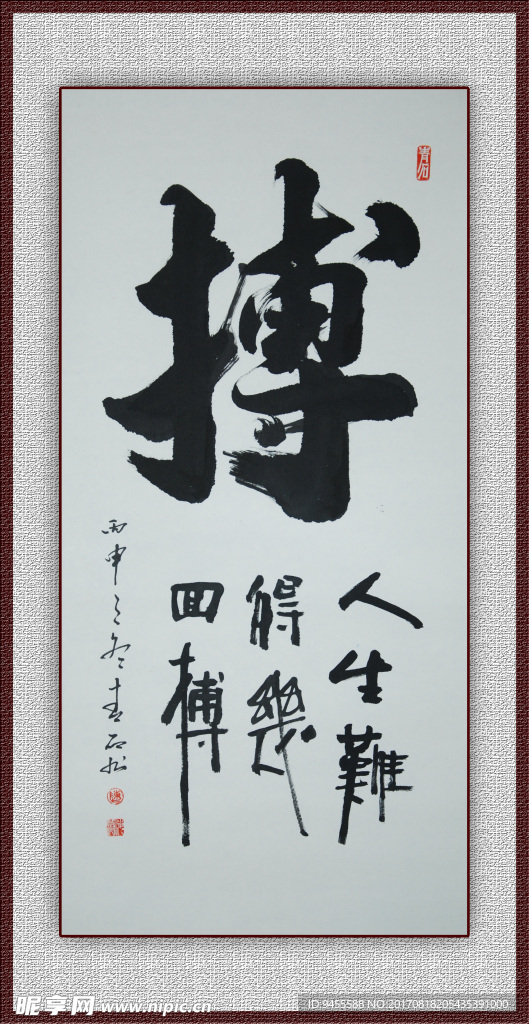 青石
搏
人生難
得幾
回搏
丙申之冬青石
昵享网 www.nipic.cn
ID:9455588 NO:20170818205435391000